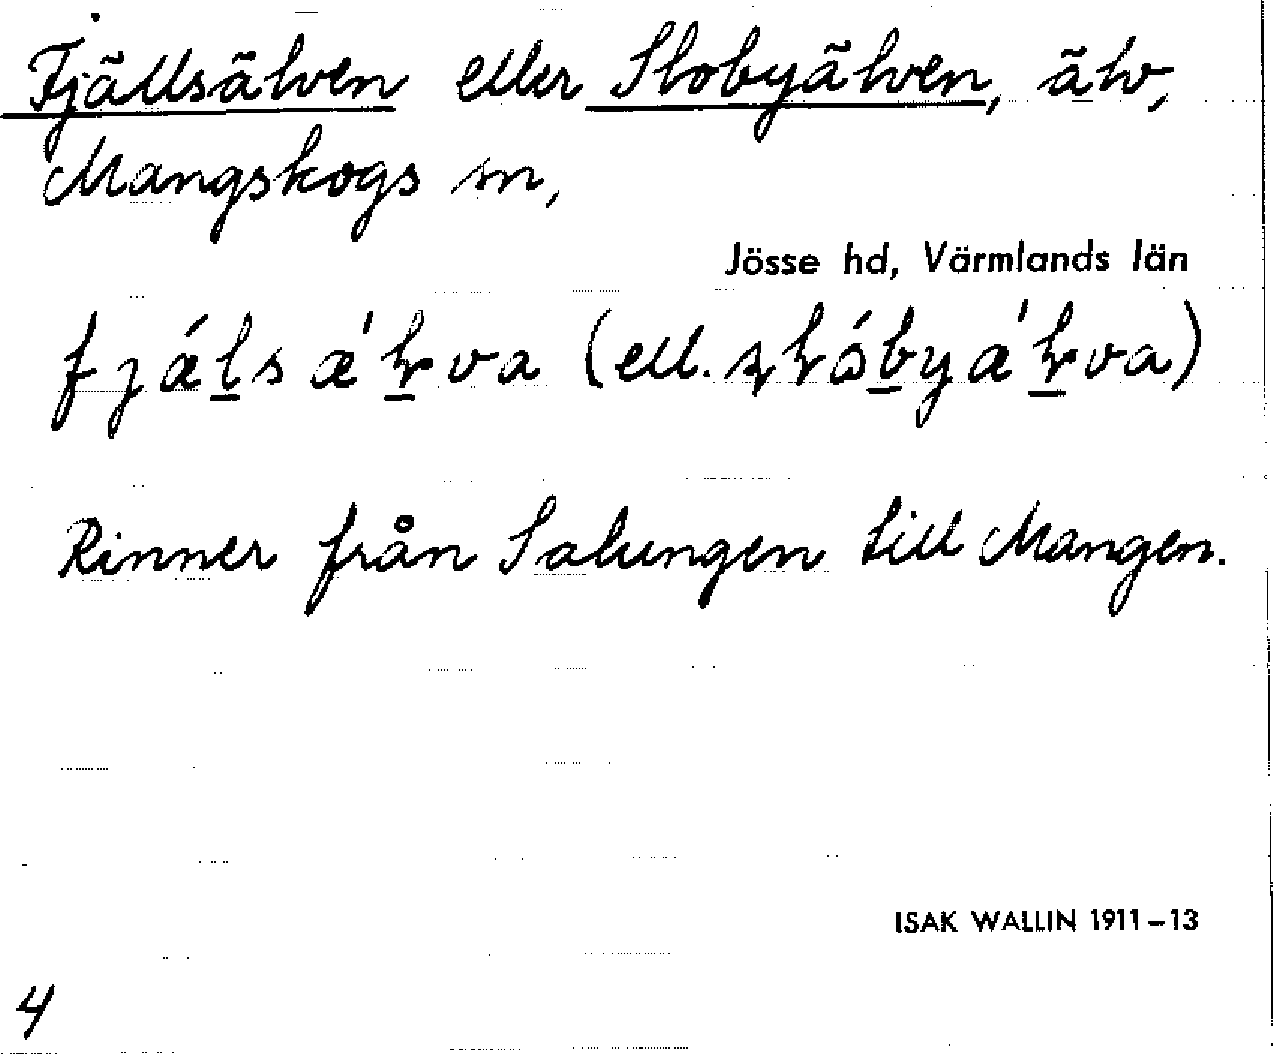 Fjällsälven eller Slobyälven, älv,
Mangskogs sn,
Jösse hd, Värmlands län
(ell.
Rinner från Salungen till Mangen.
ISAK WALLIN 1911–13
4